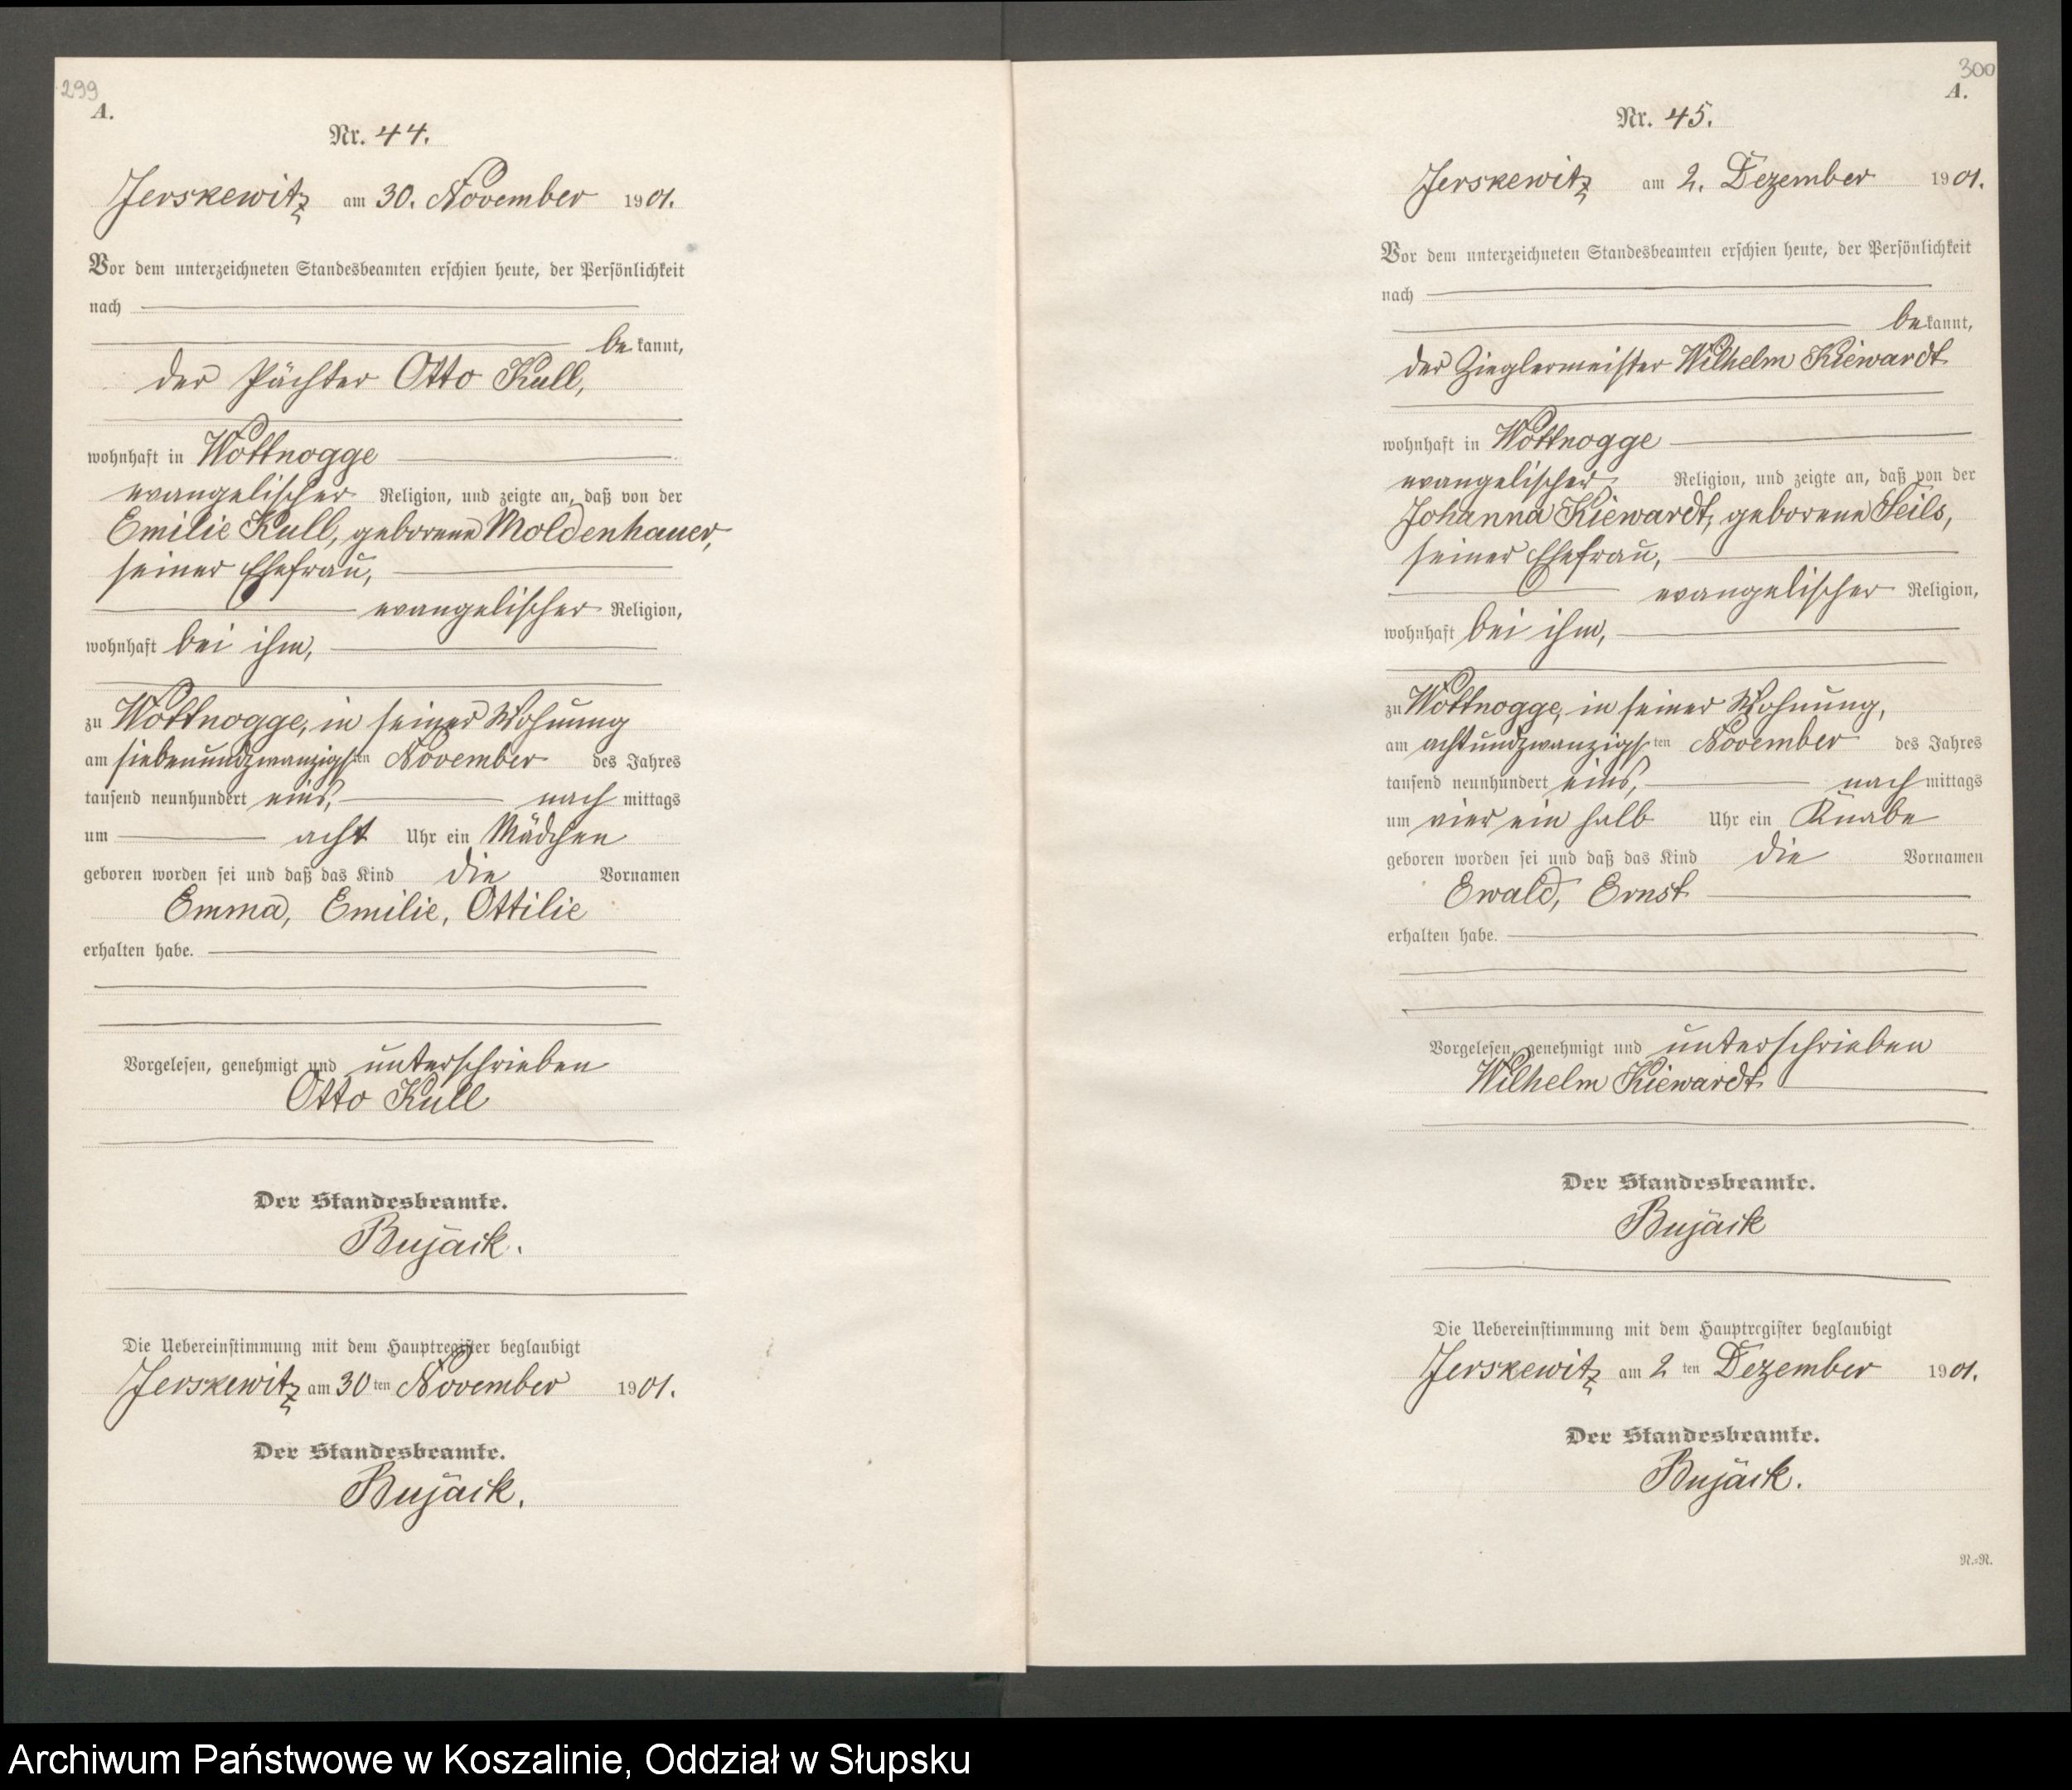 299
A.
Nr. 44.
Jerskewitz am 30. November 1901.
Vor dem unterzeichneten Standesbeamten erschien heute, der Persönlichkeit
nach
be kannt,
der Pächter Otto Kull,
wohnhaft in Wottnogge
evangelischer Religion, und zeigte an, daß von der
Emilie Kull, geborene Moldenhauer,
seiner Ehefrau,
evangelischer Religion,
wohnhaft bei ihm,
zu Wottnogge, in seiner Wohnung
am siebenundzwanzigsten November des Jahres
tausend neunhundert eins, nach mittags
um acht Uhr ein Mädchen
geboren worden sei und daß das Kind die Vornamen
Emma, Emilie, Ottilie
erhalten habe.
Vorgelesen, genehmigt und unterschrieben
Otto Kull
Der Standesbeamte.
Bujack.
Die Uebereinstimmung mit dem Hauptregister beglaubigt
Jerskewitz am 30 ten November 1901.
Der Standesbeamte.
Bujack.
300
A.
Nr. 45.
Jerskewitz am 2. Dezember 1901.
Vor dem unterzeichneten Standesbeamten erschien heute, der Persönlichkeit
nach
bekannt,
der Zieglermeister Wilhelm Kiewardt
wohnhaft in Wottnogge
evangelischer Religion, und zeigte an, daß von der
Johanna Kiewardt, geborene Feils,
seiner Ehefrau,
evangelischer Religion,
wohnhaft bei ihm,
zu Wottnogge, in seiner Wohnung,
am achtundzwanzigsten November des Jahres
tausend neunhundert eins, nach mittags
um vier ein halb Uhr ein Knabe
geboren worden sei und daß das Kind die Vornamen
Ewald, Ernst
erhalten habe.
Vorgelesen, genehmigt und unterschrieben
Wilhelm Kiewardt
Der Standesbeamte.
Bujack
Die Uebereinstimmung mit dem Hauptregister beglaubigt
Jerskewitz am 2 ten Dezember 1901.
Der Standesbeamte.
Bujack.
N.-R.
Archiwum Państwowe w Koszalinie, Oddział w Słupsku